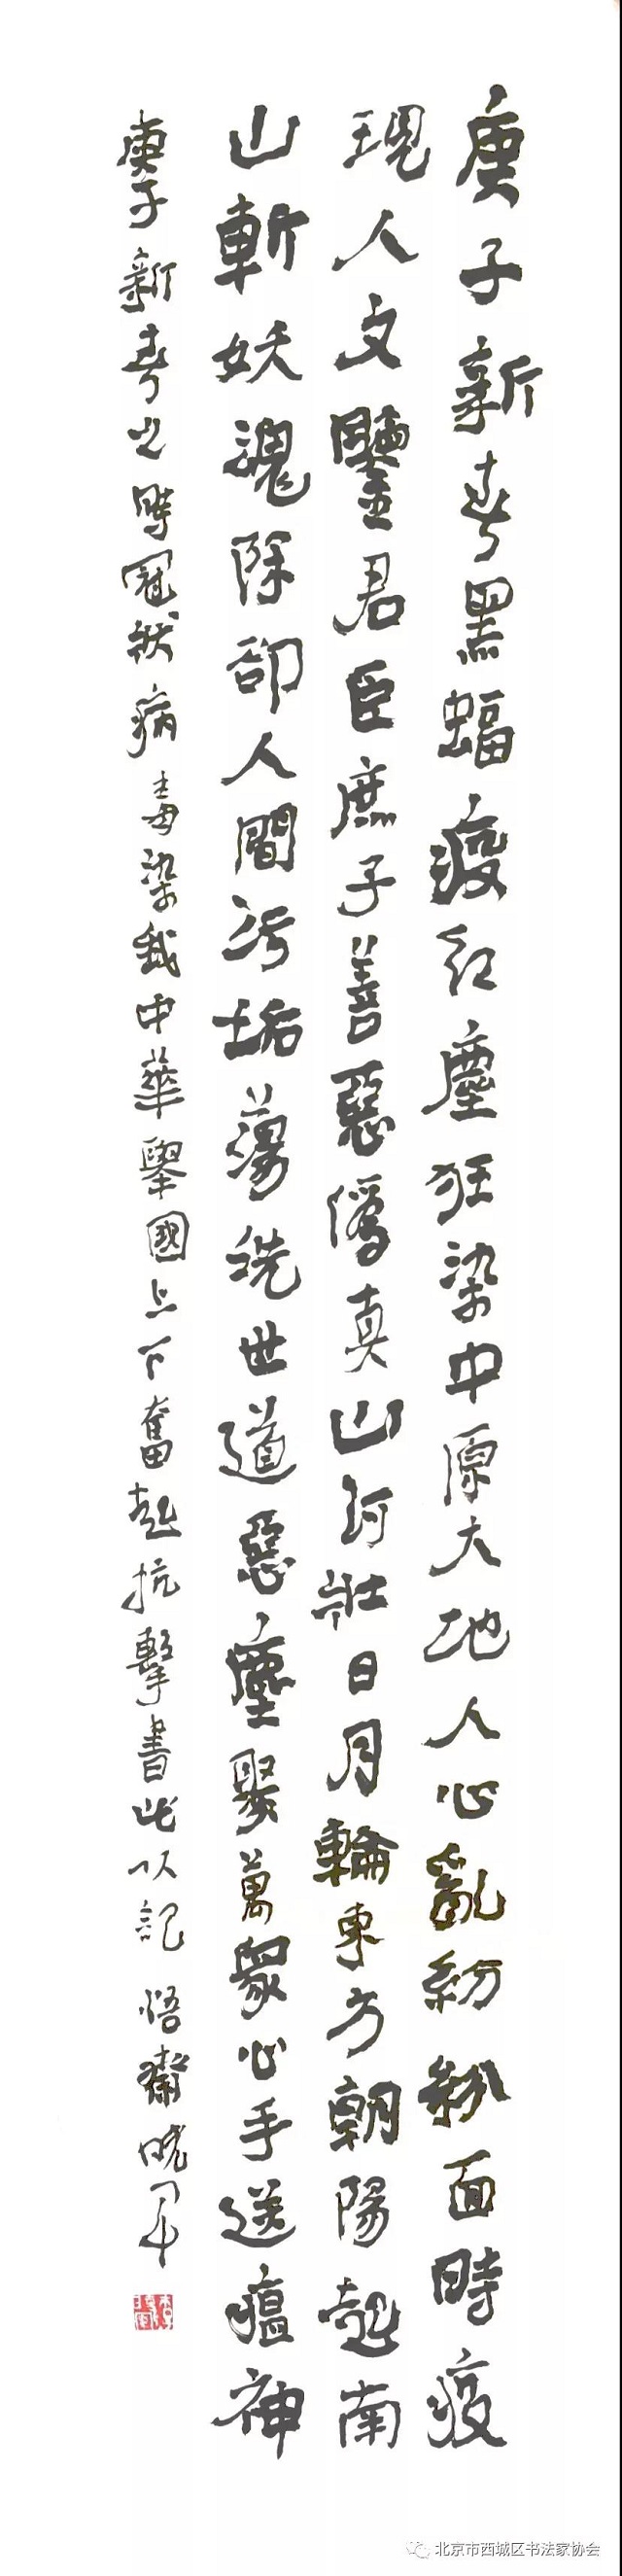 庚子新春黑蝠疫紅塵狂染中原大地人心亂紛紛面時疫
現人文鑒君臣庶子善惡僞真山河壯日月輪東方朝陽起南
山斬妖魂除卻人間污垢蕩洗世道惡塵聚萬眾心手送瘟神
庚子新春之時冠狀病毒染我中華舉國上下奮起抗擊書此以記 悟齋曉軍
北京市西城区书法家协会